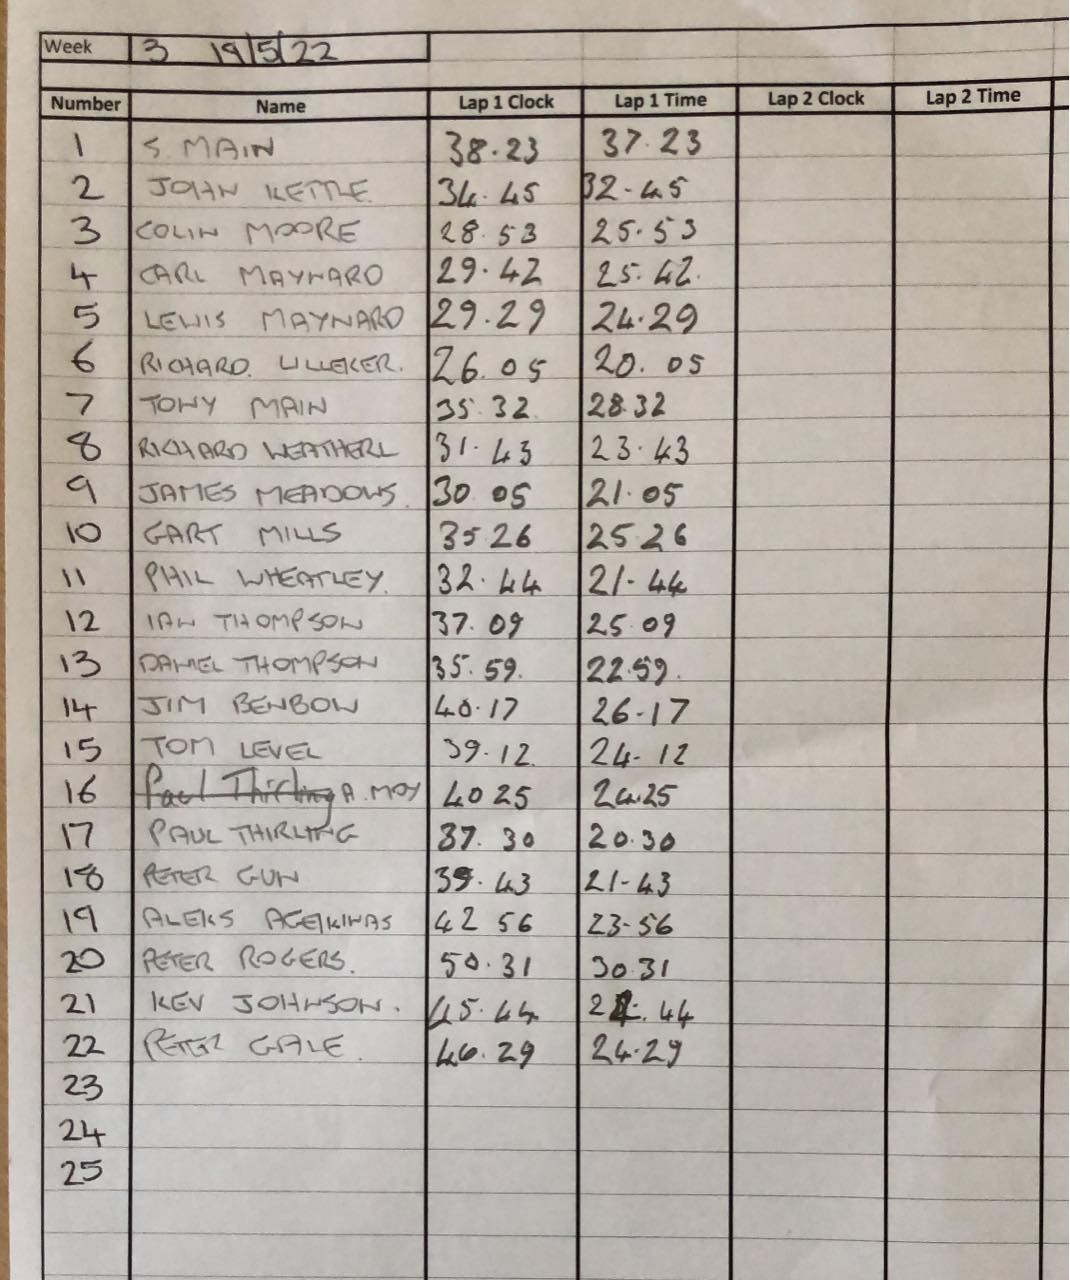 Week 3 19/5/22
Number Name Lap 1 Clock Lap 1 Time Lap 2 Clock Lap 2 Time
1 S. MAIN 38.23 37.23
2 JOHN KETTLE 34.45 32-45
3 COLIN MOORE 28.53 25.53
4 CARL MAYNARD 29.42 25.42.
5 LEWIS MAYNARD 29.29 24.29
6 RICHARD. LILLEKER. 26.05 20.05
7 TONY MAIN 35.32 28.32
8 RICHARD WEATHERL 31.43 23.43
9 JAMES MEADOWS. 30 05 21.05
10 GART MILLS 35 26 25 26
11 PHIL WHEATLEY. 32.44 21-44
12 IAN THOMPSON 37.09 25.09
13 DANIEL THOMPSON 35.59. 22.59.
14 JIM BENBOW 40.17 26-17
15 TOM LEVEL 39.12. 24-12
16 Paul Thirling A. MOY 40 25 24.25
17 PAUL THIRLING 37.30 20.30
18 PETER GUN 39.43 21-43
19 ALEKS 42 56 23-56
20 PETER ROGERS. 50.31 30.31
21 KEV JOHNSON. 45.44
22 PETER GALE. 46.29 24.29
23
24
25